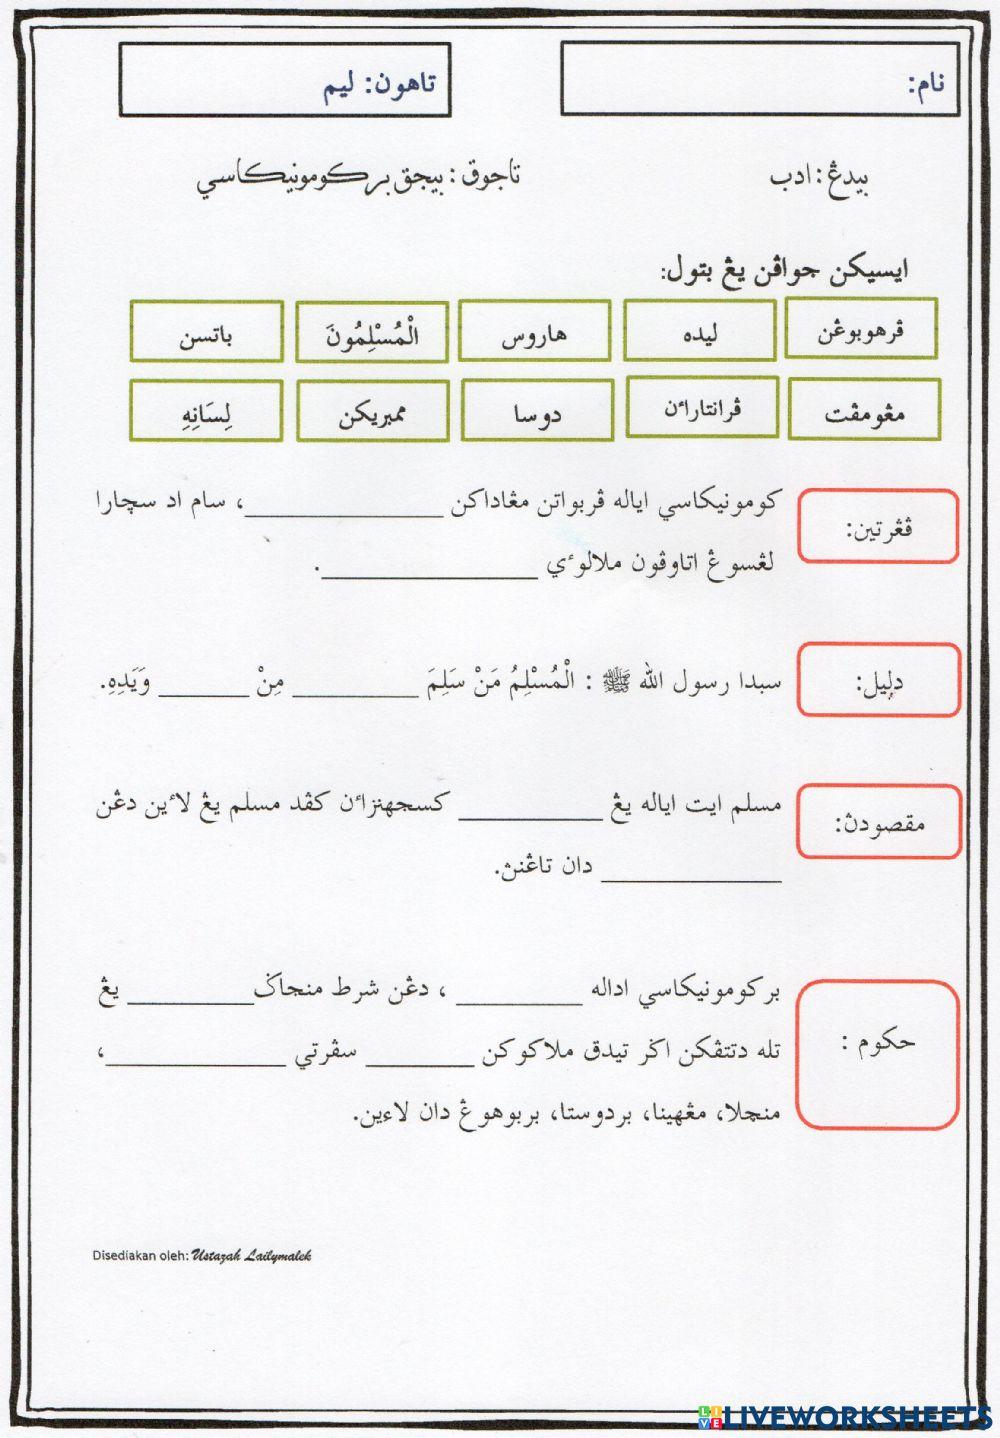 نام:
تاهون: ليم
بيدڠ: ادب
تاجوق: بيجق برکومونيکاسي
ايسيکن جواڤن يڠ بتول:
ڤرهوبوڠن ليده هاروس الْمُسْلِمُونَ باتسن
مڠومڤت ڤرانتاراءن دوسا ممبريکن لِسَانِهِ
ڤڠرتين:
کومونيکاسي اياله ڤربواتن مڠاداکن ____________، سام اد سچارا
لڠسوڠ اتاوڤون ملالوءي ____________.
دليل:
سبدا رسول الله ﷺ : الْمُسْلِمُ مَنْ سَلِمَ ________ مِنْ ______ وَيَدِهِ.
مقصودڽ:
مسلم ايت اياله يڠ _________ کسجهتراءن کڤد مسلم يڠ لاءين دڠن
___________ دان تاڠنڽ.
حکوم :
برکومونيکاسي اداله ________ ، دڠن شرط منجاݢ ________ يڠ
تله دتتڤکن اݢر تيدق ملاکوکن _______ سڤرتي ___________،
منچلا، مڠهينا، بردوستا، بربوهوڠ دان لاءين.
Disediakan oleh: Ustazah Lailymalek
LIVEWORKSHEETS